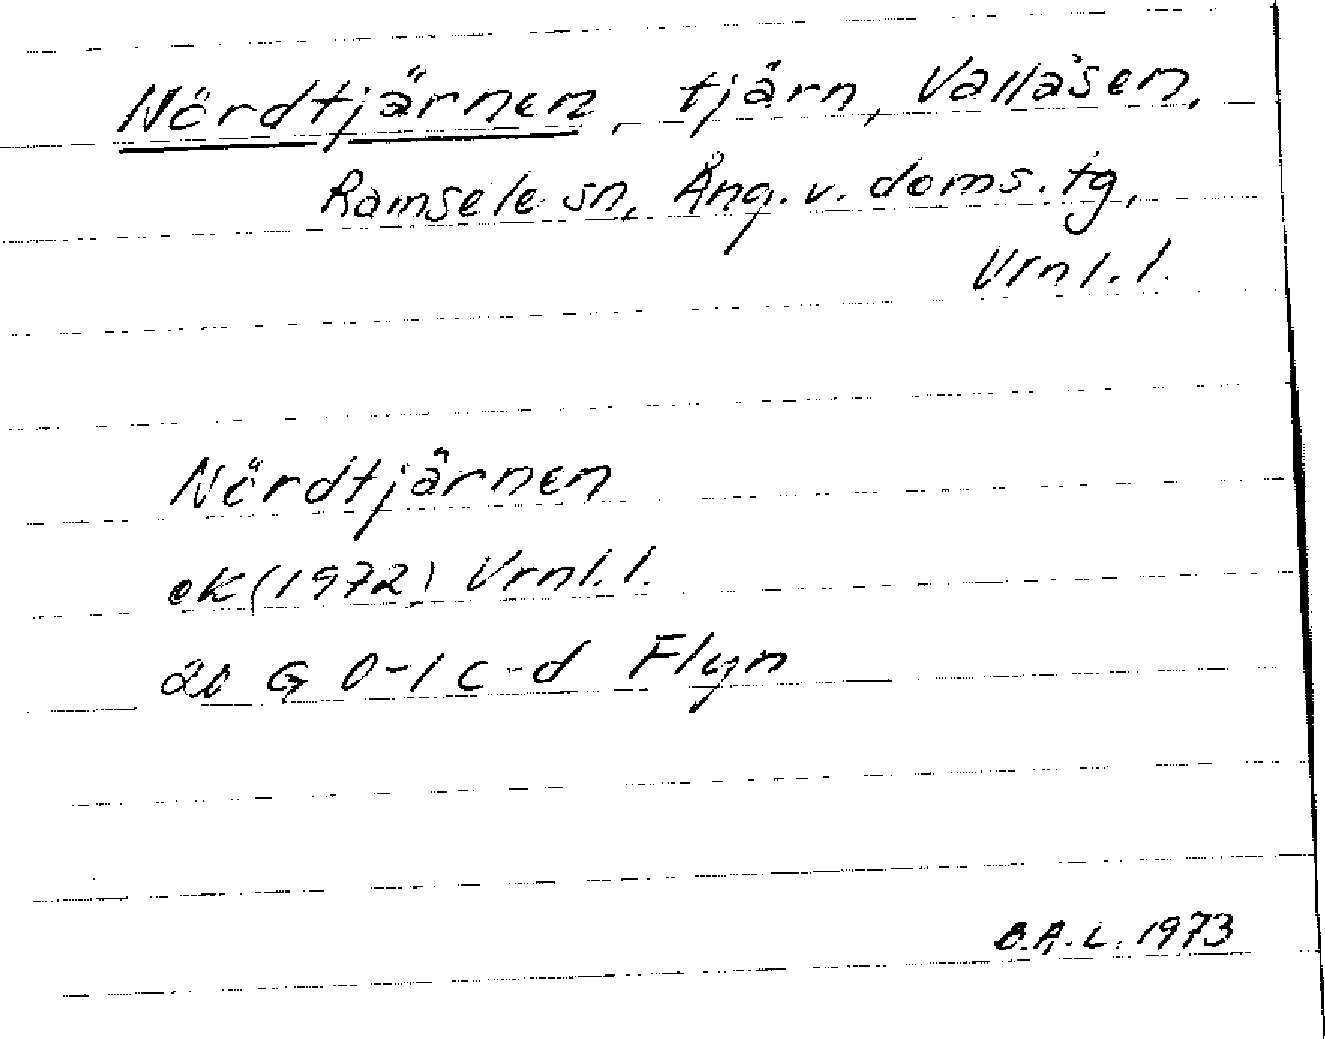 Nördtjärnen, tjärn, Vallåsen,
Ramsele sn, Ång. v. doms. tg,
Vrnl. l.
Nördtjärnen
ek (1972) Vrnl. l.
20 G 0-1 c-d Flyn
B.A.L. 1973